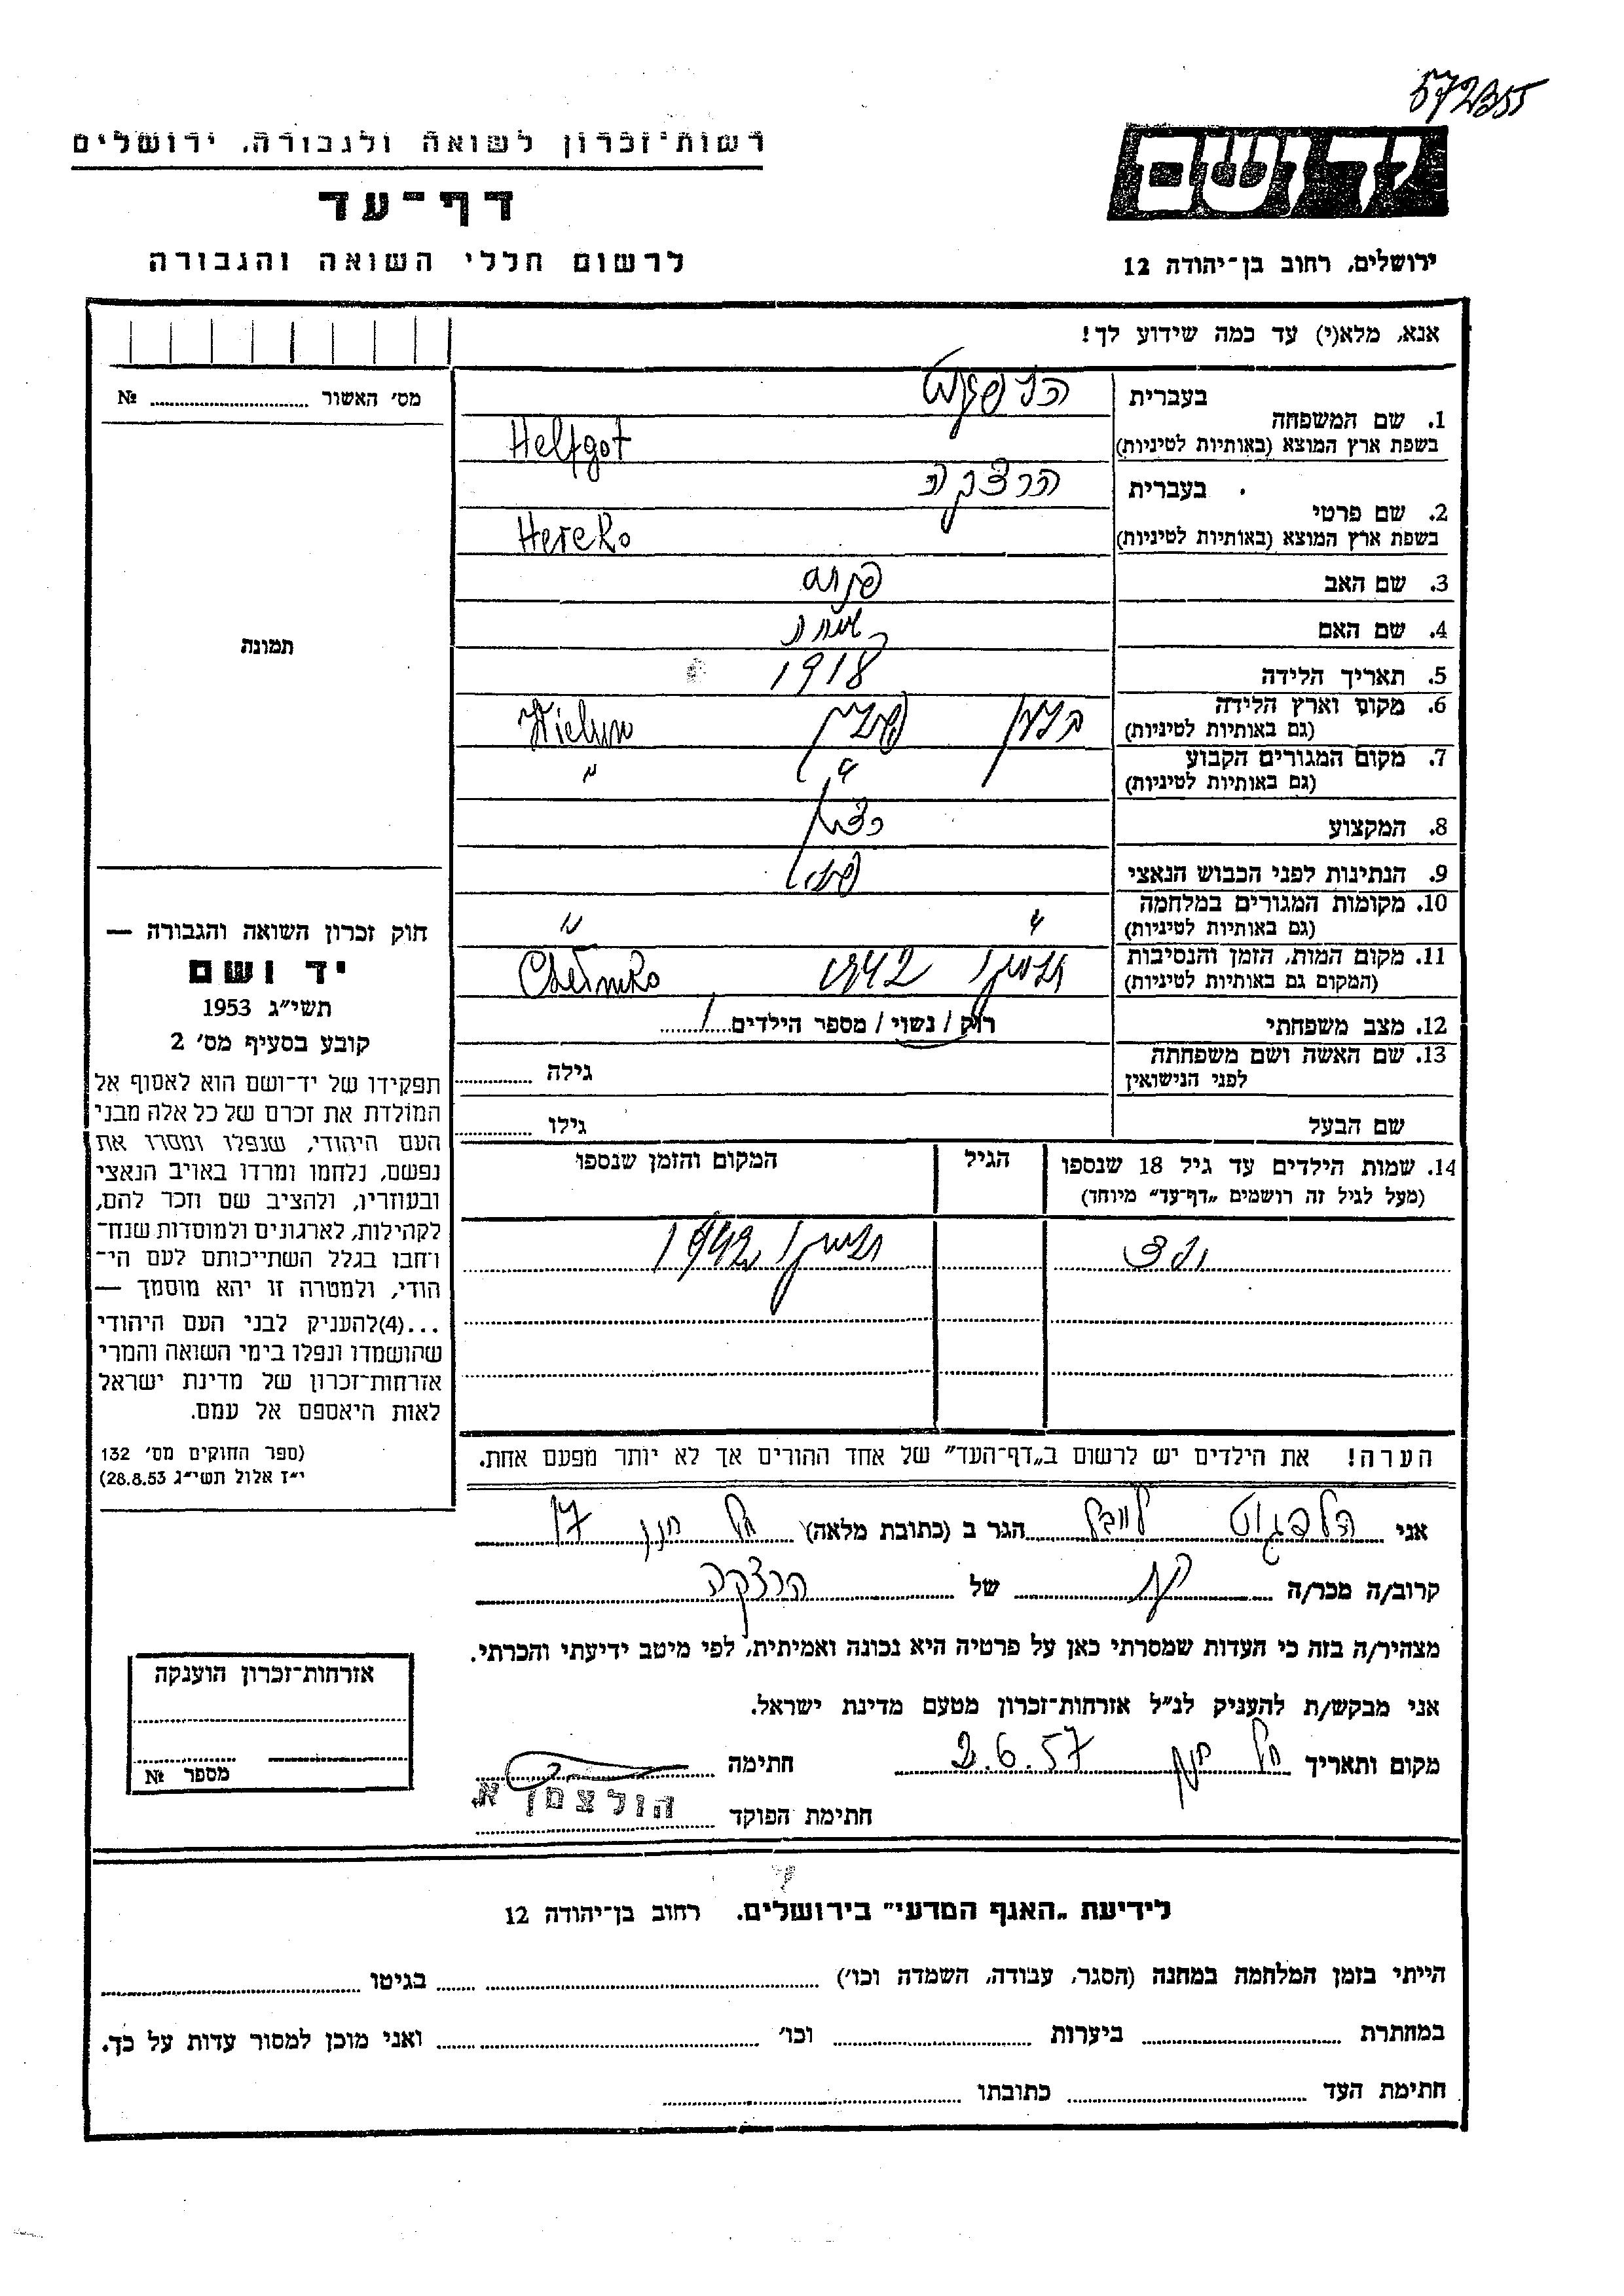 572355
רשות־זכרון לשואה ולגבורה, ירושלים
דף־עד
לרשום חללי השואה והגבורה
ידושם
ירושלים, רחוב בן־יהודה 12
אנא, מלא(י) עד כמה שידוע לך!
מס׳ האשור № 
תמונה
1. שם המשפחה
בעברית
בשפת ארץ המוצא (באותיות לטיניות) Helfgot
2. שם פרטי
בעברית הרצקה
בשפת ארץ המוצא (באותיות לטיניות)
3. שם האב
4. שם האם
5. תאריך הלידה 1918
6. מקום וארץ הלידה
(גם באותיות לטיניות) פולין Wielun
7. מקום המגורים הקבוע
(גם באותיות לטיניות) " "
8. המקצוע
9. הנתינות לפני הכבוש הנאצי
10. מקומות המגורים במלחמה
(גם באותיות לטיניות) " "
11. מקום המות, הזמן והנסיבות
(המקום גם באותיות לטיניות) 1942 Chełmno
12. מצב משפחתי רוק / נשוי / מספר הילדים 1
13. שם האשה ושם משפחתה
לפני הנישואין גילה
שם הבעל גילו
14. שמות הילדים עד גיל 18 שנספו
(מעל לגיל זה רושמים „דף־עד״ מיוחד)
הגיל
המקום והזמן שנספו
1942
הערה! את הילדים יש לרשום ב„דף־העד״ של אחד ההורים אך לא יותר מפעם אחת.
חוק זכרון השואה והגבורה —
יד ושם
תשי״ג 1953
קובע בסעיף מס׳ 2
תפקידו של יד־ושם הוא לאסוף אל
המולדת את זכרם של כל אלה מבני
העם היהודי, שנפלו ומסרו את
נפשם, נלחמו ומרדו באויב הנאצי
ובעוזריו, ולהציב שם וזכר להם,
לקהילות, לארגונים ולמוסדות שנח־
רחבו בגלל השתייכותם לעם הי־
הודי, ולמטרה זו יהא מוסמך —
...(4)להעניק לבני העם היהודי
שהושמדו ונפלו בימי השואה והמרי
אזרחות־זכרון של מדינת ישראל
לאות היאספם אל עמם.
(ספר החוקים מס׳ 132
י״ז אלול תשי״ג 28.8.53)
אני הלפגוט לייבל הגר ב (כתובת מלאה) תל חנן 17
קרוב/ה מכר/ה של הרצקה
מצהיר/ה בזה כי העדות שמסרתי כאן על פרטיה היא נכונה ואמיתית, לפי מיטב ידיעתי והכרתי.
אני מבקש/ת להעניק לנ״ל אזרחות־זכרון מטעם מדינת ישראל.
מקום ותאריך תל חנן 2.6.57 חתימה
חתימת הפוקד הולצמן א.
אזרחות־זכרון הוענקה
מספר №
לידיעת „האגף המדעי״ בירושלים. רחוב בן־יהודה 12
הייתי בזמן המלחמה במחנה (הסגר, עבודה, השמדה וכו׳) בגיטו
במחתרת ביערות וכו׳ ואני מוכן למסור עדות על כך.
חתימת העד כתובתו